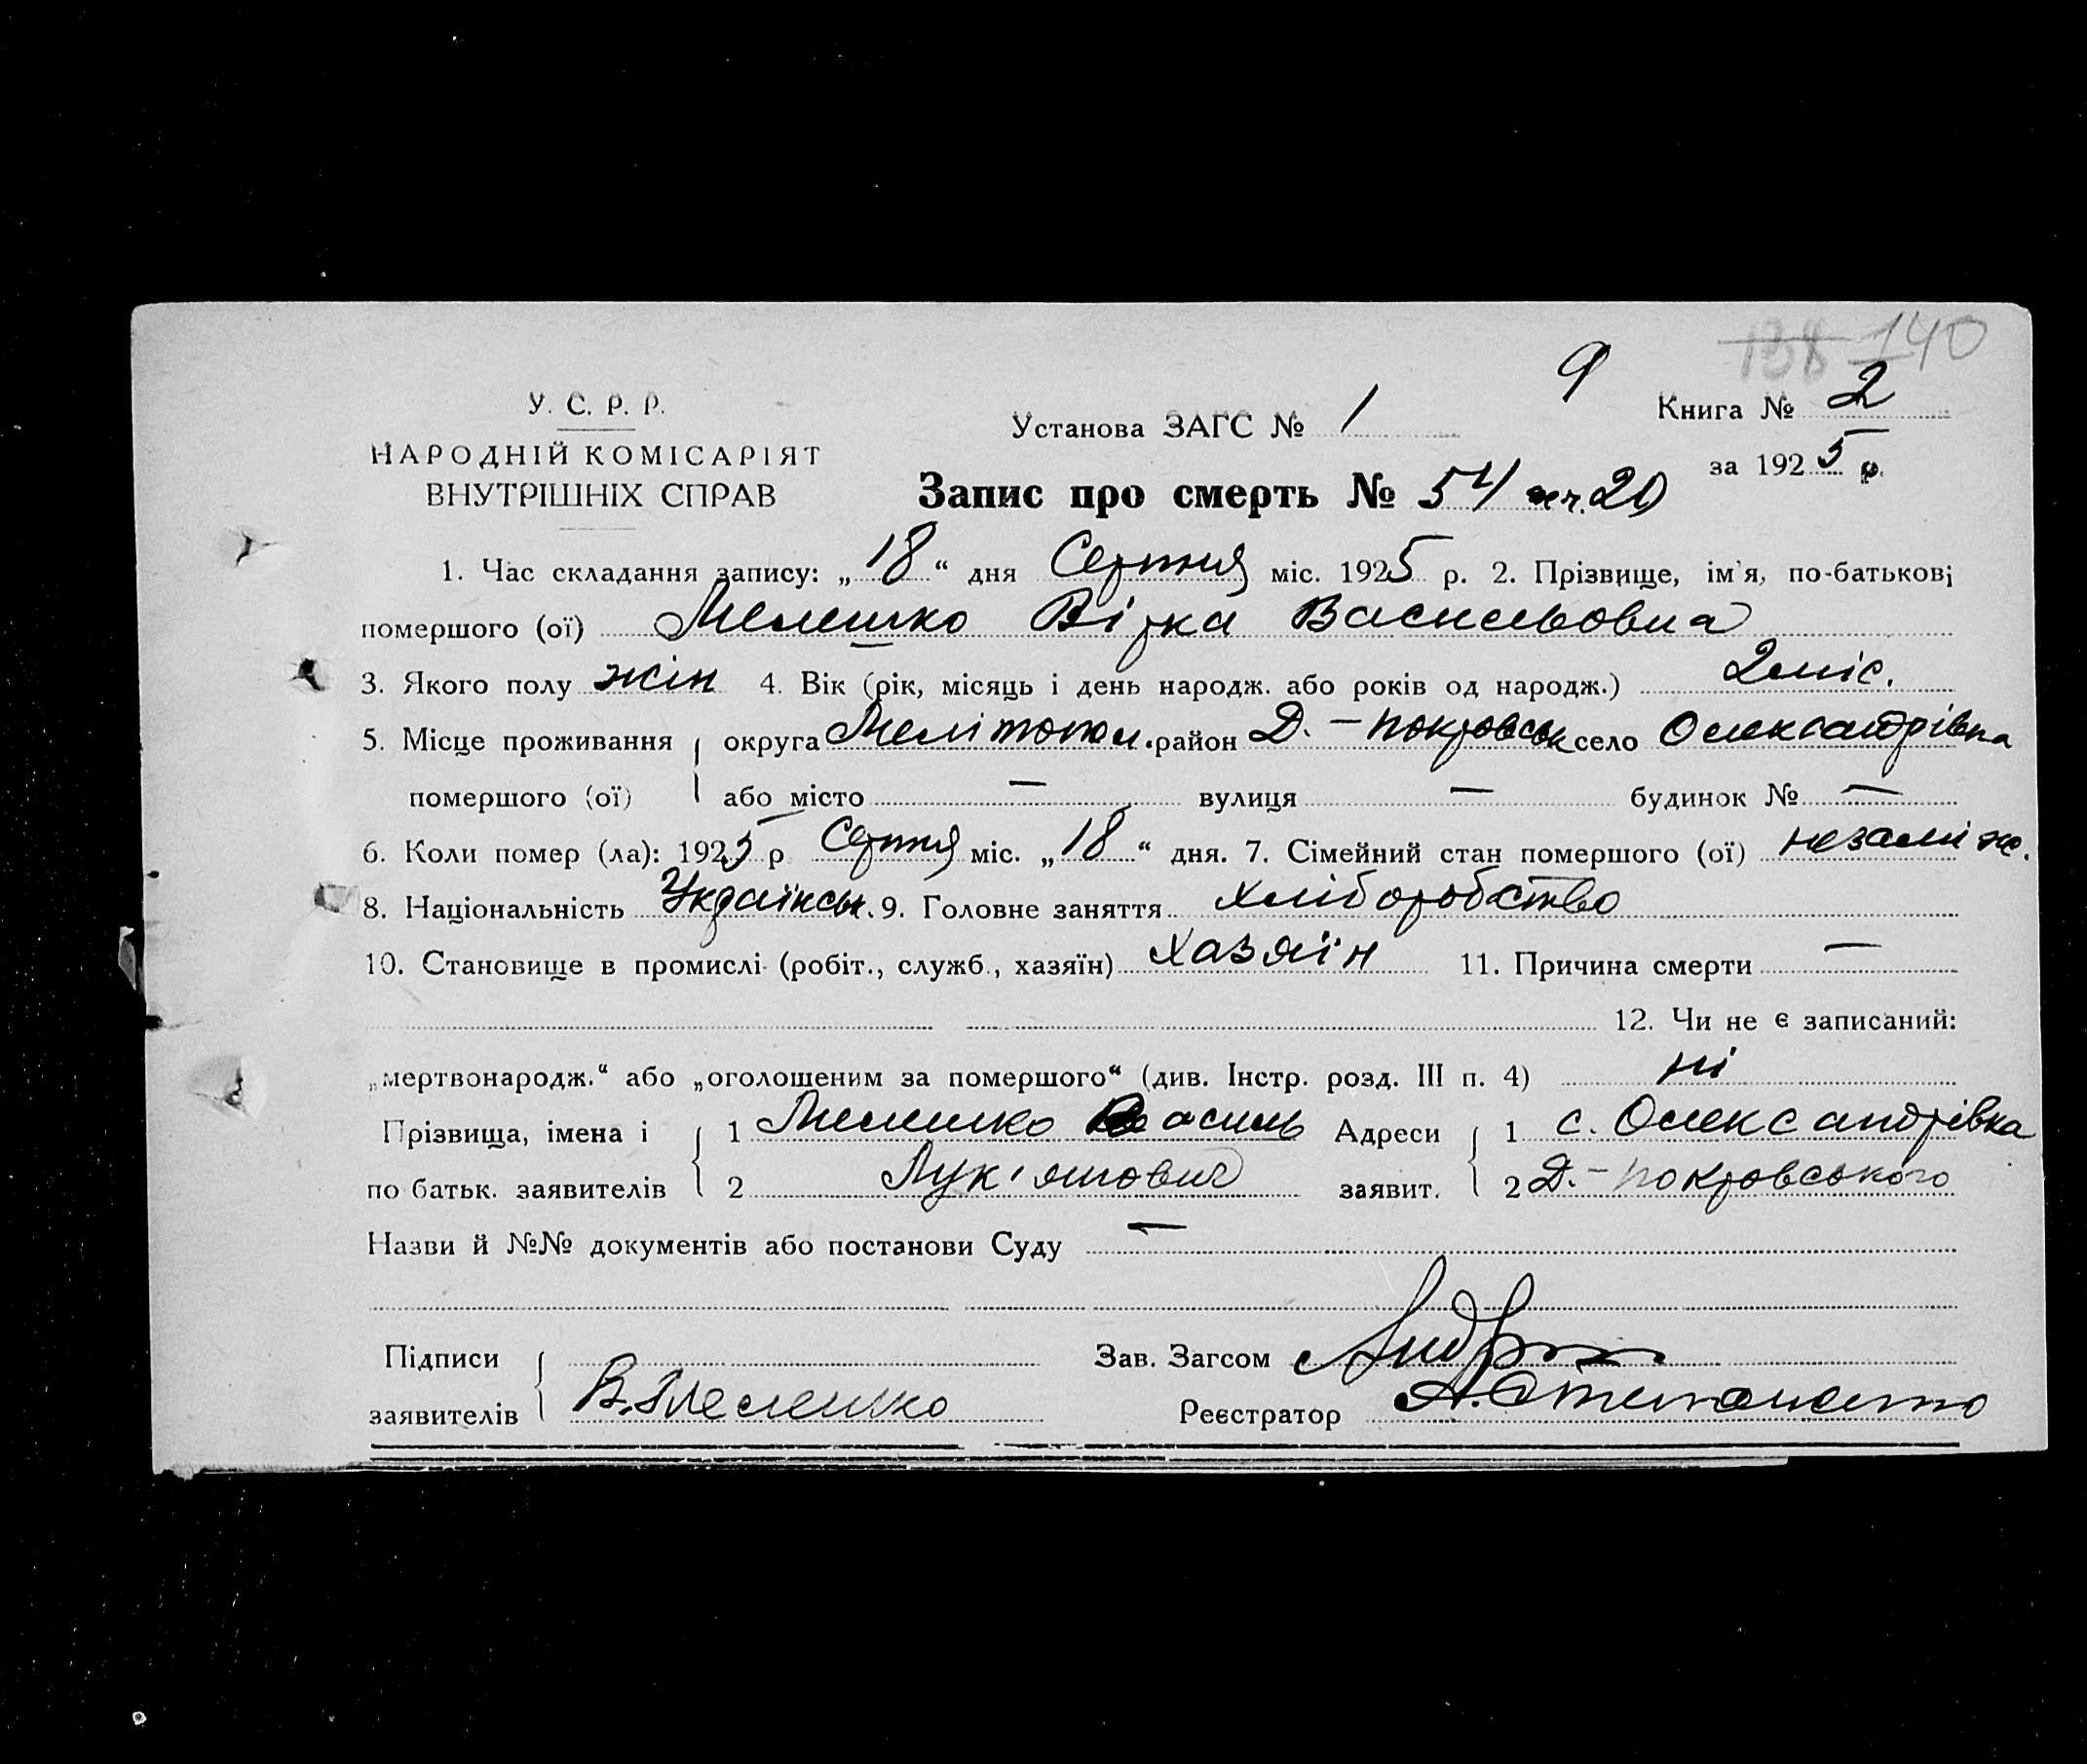 138 140
9
У. С. Р. Р.
Установа ЗАГС № 1
Книга № 2
НАРОДНІЙ КОМІСАРІЯТ
за 1925 р.
ВНУТРІШНІХ СПРАВ
Запис про смерть № 54 жт. 20
1. Час складання запису: „18“ дня Серпня міс. 1925 р. 2. Прізвище, ім'я, по-батькові
помершого (ої) Мелешко Вірка Васильовна
3. Якого полу жін 4. Вік (рік, місяць і день народж. або років од народж.) 2 міс.
5. Місце проживання округа Мелітопол. район Д.-Покровськ село Олександрівка
помершого (ої) або місто — вулиця — будинок № —
6. Коли помер (ла): 1925 р Серпня міс. „18“ дня. 7. Сімейний стан помершого (ої) незаміж.
8. Національність Українськ. 9. Головне заняття хліборобство
10. Становище в промислі (робіт., служб., хазяїн) хазяїн 11. Причина смерти —
12. Чи не є записаний:
„мертвонародж.“ або „оголошеним за помершого“ (див. Інстр. розд. III п. 4) ні
Прізвища, імена і 1 Мелешко Василь Адреси 1 с. Олександрівка
по батьк. заявителів 2 Лук'янович заявит. 2 Д.-Покровського
Назви й №№ документів або постанови Суду —
Підписи Зав. Загсом
заявителів В. Мелешко Реєстратор А. Степаненко